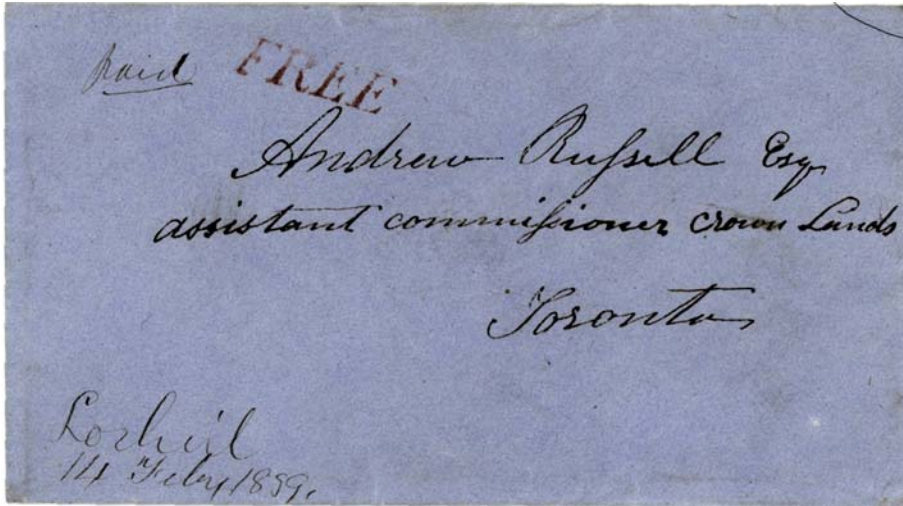 paid FREE
Andrew Russell Esq
assistant commissioner crown Lands
Toronto
Lochiel
14 Feby 1859.